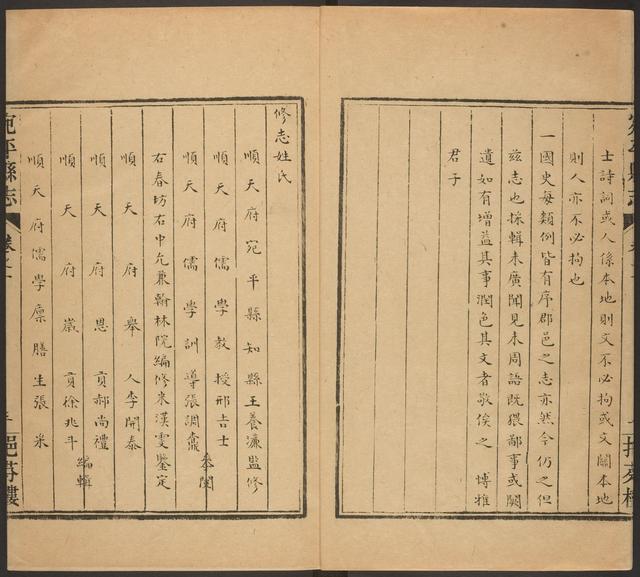 士詩詞或人係本地則文不必拘或文關本地
則人亦不必拘也
一國史每類例皆有序郡邑之志亦然今仍之但
兹志也採輯未廣聞見未周語既猥鄙事或闕
遺如有增益其事潤色其文者敬俟之 博雅
君子
修志姓氏
順天府宛平縣知縣王養濂監修
順天府儒學教授邢吉士
順天府儒學訓導張調鼐
叅閱
右春坊右中允兼翰林院編修米漢雯鑒定
順天府舉人李開泰
順天府恩貢郝尚禮
順天府歲貢徐兆斗
編輯
順天府儒學廩膳生張米
宛平縣志
挹芬樓